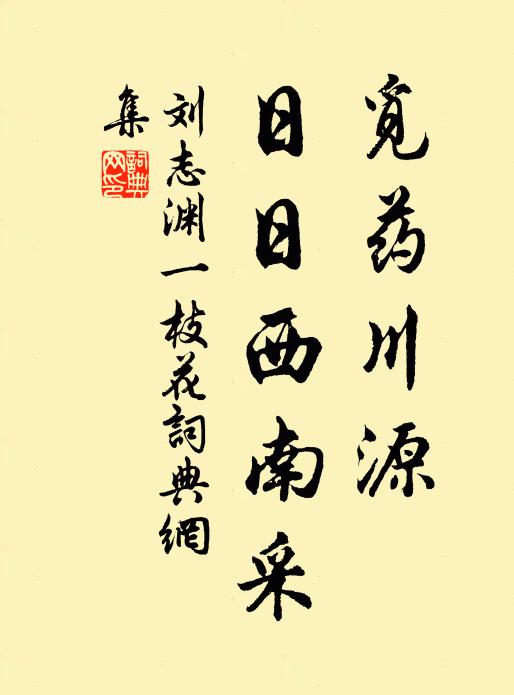 觅药川源
日日西南采
刘志渊一枝花詞典網
集
詞典网印